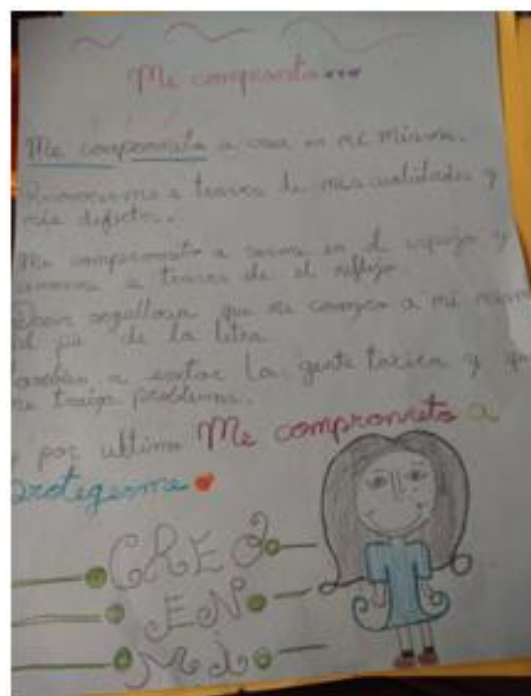 Me comprometo...
Me comprometo a creer en mi misma.
Reconocerme a traves de mis cualidades y
mis defectos.
Me comprometo a verme en el espejo y
a traves de el reflejo.
Decir orgullosa que me conozco a mi misma
al pie de la letra
tambien a evitar la gente toxica y que
me traiga problemas.
y por ultimo Me comprometo a
protegerme
CREO
EN
Mi